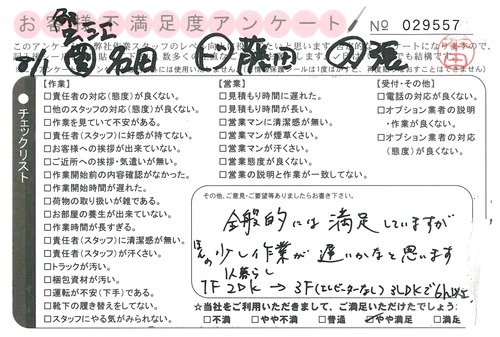 お客様不満足度アンケート
No 029557
【作業】
□責任者の対応(態度)が良くない。
□他のスタッフの対応(態度)が良くない。
□作業を見ていて不安がある。
□責任者(スタッフ)に好感が持てない。
□お客様への挨拶が出来ていない。
□ご近所への挨拶・気遣いが無い。
□作業開始前の内容確認がなかった。
□作業開始時間が遅れた。
□荷物の取り扱いが雑である。
□お部屋の養生が出来ていない。
□作業時間が長すぎる。
□責任者(スタッフ)に清潔感が無い。
□責任者(スタッフ)が汗くさい。
□トラックが汚い。
□梱包資材が汚い。
□運転が不安(下手)である。
□靴下の履き替えをしてない。
□スタッフにやる気がみられない。
チェックリスト
【営業】
□見積もり時間に遅れた。
□見積もり時間が長い。
□営業マンに清潔感が無い。
□営業マンが煙草くさい。
□営業マンが汗くさい。
□営業態度が良くない。
□営業の説明と作業が一致してない。
【受付・その他】
□電話の対応が良くない。
□オプション業者の説明
・作業が良くない。
□オプション業者の対応
(態度)が良くない。
その他、ご意見・ご要望等ありましたらお書き下さい。
全般的には満足していますが
ほんの少し作業が遅いかなと思います
1人暮らし
1F 2DK → 3F(エレベーターなし) 3LDKで6h以上
☆当社をご利用いただきまして、ご満足いただけたでしょうか
□不満 □やや不満 □普通 ☑やや満足 □満足